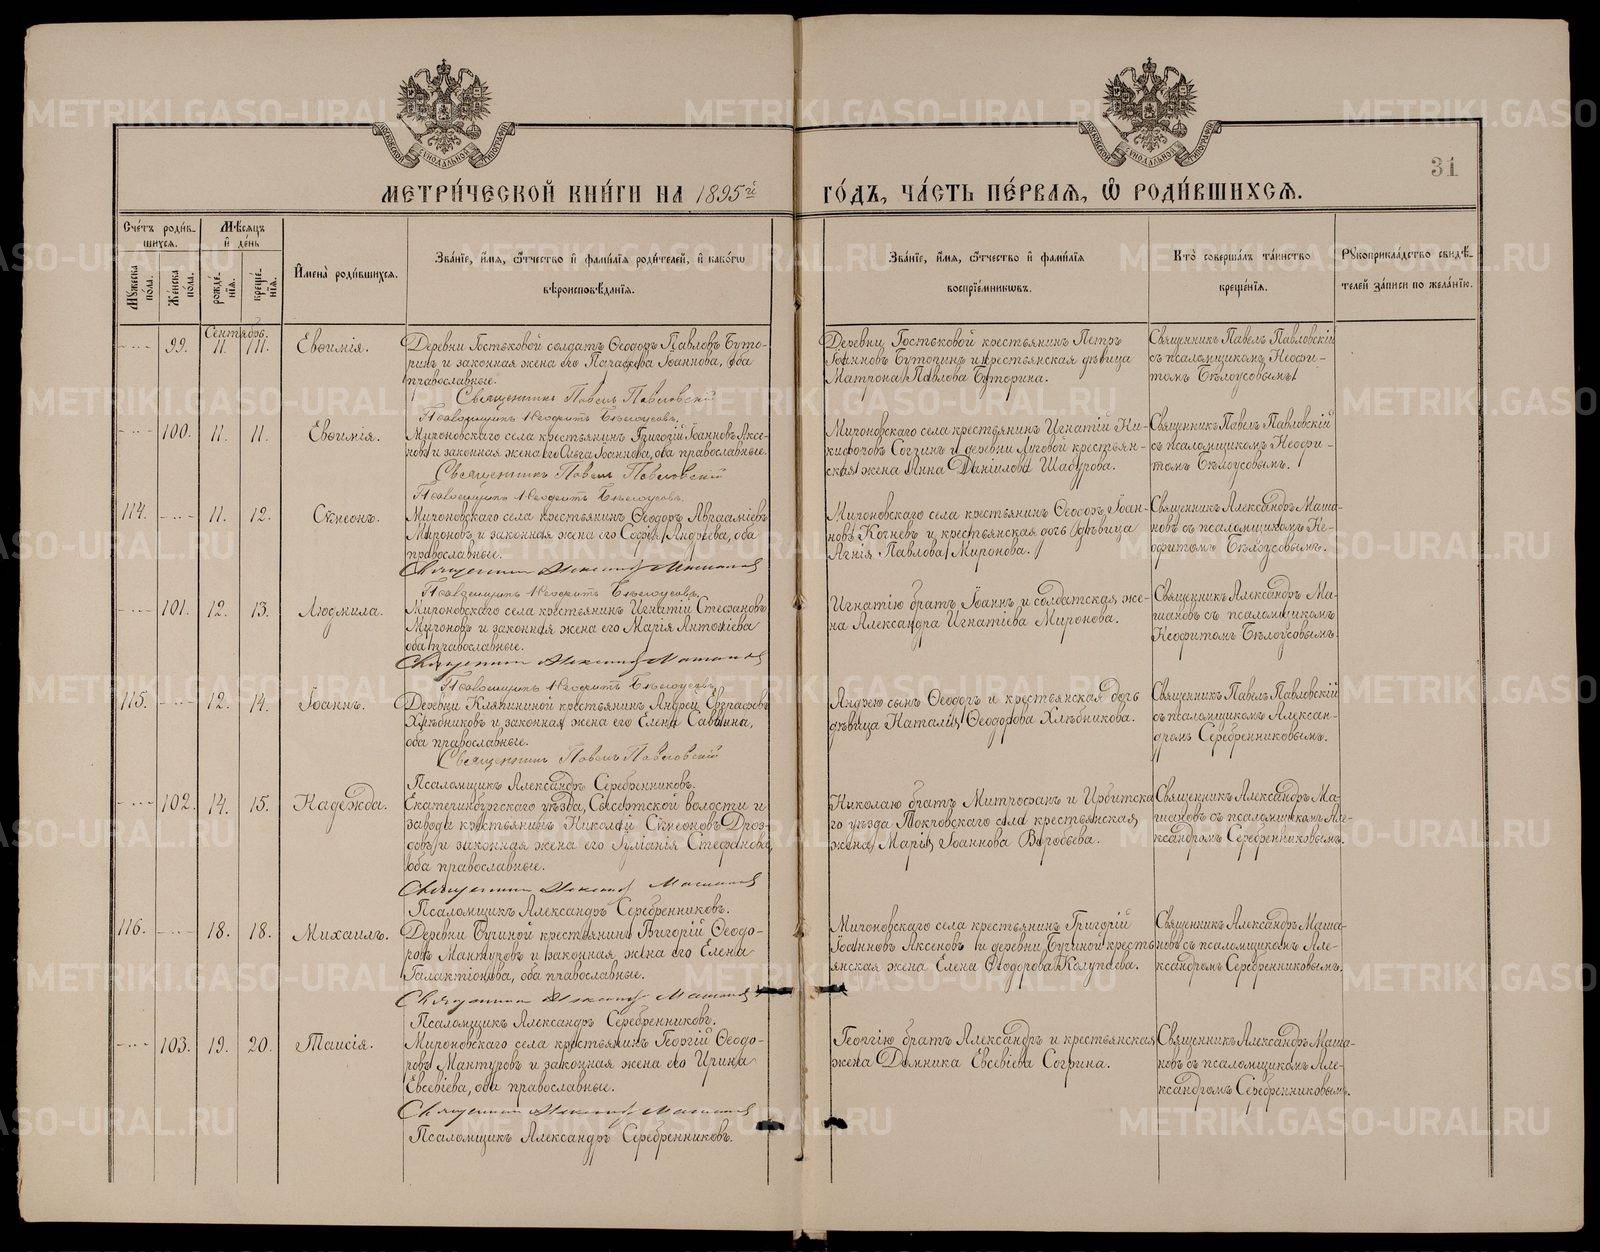 МЕТРИ́ЧЕСКОЙ КНИ́ГИ НА 1895й
ГО́ДЪ, ЧА́СТЬ ПЕ́РВАѦ, Ѡ҆ РОДИ́ВШИХСѦ.
31
МОСКОВСКОЙ СѴНОДАЛЬНОЙ ТИПОГРАФІИ
МОСКОВСКОЙ СѴНОДАЛЬНОЙ ТИПОГРАФІИ
Сче́тъ роди́в-
шихсѧ.
Мужеска по́ла.
Же́нска по́ла.
Мѣ́сѧцъ
и҆ де́нь
рожде́-
нїѧ.
креще́-
нїѧ.
И҆мена̀ роди́вшихсѧ.
Зва́нїе, и҆́мѧ, ѻ҆́тчество и҆ фами́лїѧ роди́телей, и҆ како́гѡ
вѣроисповѣ́данїѧ.
Зва́нїе, и҆́мѧ, ѻ҆́тчество и҆ фами́лїѧ
воспрїе́мникѡвъ.
Кто̀ соверша́лъ та́инство
креще́нїѧ.
Рꙋкоприкла́дство свидѣ́-
телей за́писи по жела́нїю.
Сентябрь.
99. 11. 11. Евѳимія.
Деревни Гостьковой солдатъ Ѳеодоръ Павловъ Буто-
ринъ и законная жена его Параскева Іоаннова, оба
православные.
Священникъ Павелъ Павловскій
Псаломщикъ Неофитъ Бѣлоусовъ.
Деревни Гостьковой крестьянинъ Петръ
Іоанновъ Буторинъ и крестьянская дѣвица
Матрона Павлова Буторина.
Священникъ Павелъ Павловскій
съ псаломщикомъ Неофи-
томъ Бѣлоусовымъ.
100. 11. 11. Евѳимія.
Мироновскаго села крестьянинъ Григорій Іоанновъ Аксе-
новъ и законная жена его Ольга Іоаннова, оба православные.
Священникъ Павелъ Павловскій
Псаломщикъ Неофитъ Бѣлоусовъ.
Мироновскаго села крестьянинъ Игнатій Ни-
кифоровъ Согринъ и деревни Луговой крестьян-
ская жена Анна Даніилова Шабурова.
Священникъ Павелъ Павловскій
съ псаломщикомъ Неофи-
томъ Бѣлоусовымъ.
114. 11. 12. Сѵмеонъ.
Мироновскаго села крестьянинъ Ѳеодоръ Авраамиевъ
Мироновъ и законная жена его Софія Андреева, оба
православные.
Священникъ Александръ Машановъ
Псаломщикъ Неофитъ Бѣлоусовъ.
Мироновскаго села крестьянинъ Ѳеодоръ Іоан-
новъ Кочневъ и крестьянская дочь дѣвица
Агнія Павлова Миронова.
Священникъ Александръ Маша-
новъ съ псаломщикомъ Не-
офитомъ Бѣлоусовымъ.
101. 12. 13. Людмила.
Мироновскаго села крестьянинъ Игнатій Стефановъ
Мироновъ и законная жена его Марія Антоніева
оба православные.
Священникъ Александръ Машановъ
Псаломщикъ Неофитъ Бѣлоусовъ.
Игнатію братъ Іоаннъ и солдатская же-
на Александра Игнатіева Миронова.
Священникъ Александръ Ма-
шановъ съ псаломщикомъ
Неофитомъ Бѣлоусовымъ.
115. 12. 14. Іоаннъ.
Деревни Клепининой крестьянинъ Андрей Евграфовъ
Хлѣбниковъ и законная жена его Елена Саввина,
оба православные.
Священникъ Павелъ Павловскій
Псаломщикъ Александръ Серебренниковъ.
Андрею сынъ Ѳеодоръ и крестьянская дочь
дѣвица Наталія Ѳеодорова Хлѣбникова.
Священникъ Павелъ Павловскій
съ псаломщикомъ Алексан-
дромъ Серебренниковымъ.
102. 14. 15. Надежда.
Екатеринбургскаго уѣзда, Сысертской волости и
завода крестьянинъ Николай Сѵмеоновъ Дроз-
довъ и законная жена его Іуліанія Стефанова,
оба православные.
Священникъ Александръ Машановъ
Псаломщикъ Александръ Серебренниковъ.
Николаю братъ Митрофанъ и Ирбитска-
го уѣзда Покровскаго села крестьянская
жена Марія Іоаннова Воробьева.
Священникъ Александръ Ма-
шановъ съ псаломщикомъ Але-
ксандромъ Серебренниковымъ.
116. 18. 18. Михаилъ.
Деревни Бучиной крестьянинъ Григорій Ѳеодо-
ровъ Мантуровъ и законная жена его Елена
Галактіонова, оба православные.
Священникъ Александръ Машановъ
Псаломщикъ Александръ Серебренниковъ.
Мироновскаго села крестьянинъ Григорій
Іоанновъ Аксеновъ и деревни Бучиной кресть-
янская жена Елена Ѳеодорова Колупаева.
Священникъ Александръ Маша-
новъ съ псаломщикомъ Але-
ксандромъ Серебренниковымъ.
103. 19. 20. Таисія.
Мироновскаго села крестьянинъ Георгій Ѳеодо-
ровъ Мантуровъ и законная жена его Ирина
Евсевіева, оба православные.
Священникъ Александръ Машановъ
Псаломщикъ Александръ Серебренниковъ.
Георгію братъ Александръ и крестьянская
жена Домника Евсевіева Согрина.
Священникъ Александръ Маша-
новъ съ псаломщикомъ Але-
ксандромъ Серебренниковымъ.
METRIKI.GASO-URAL.RU